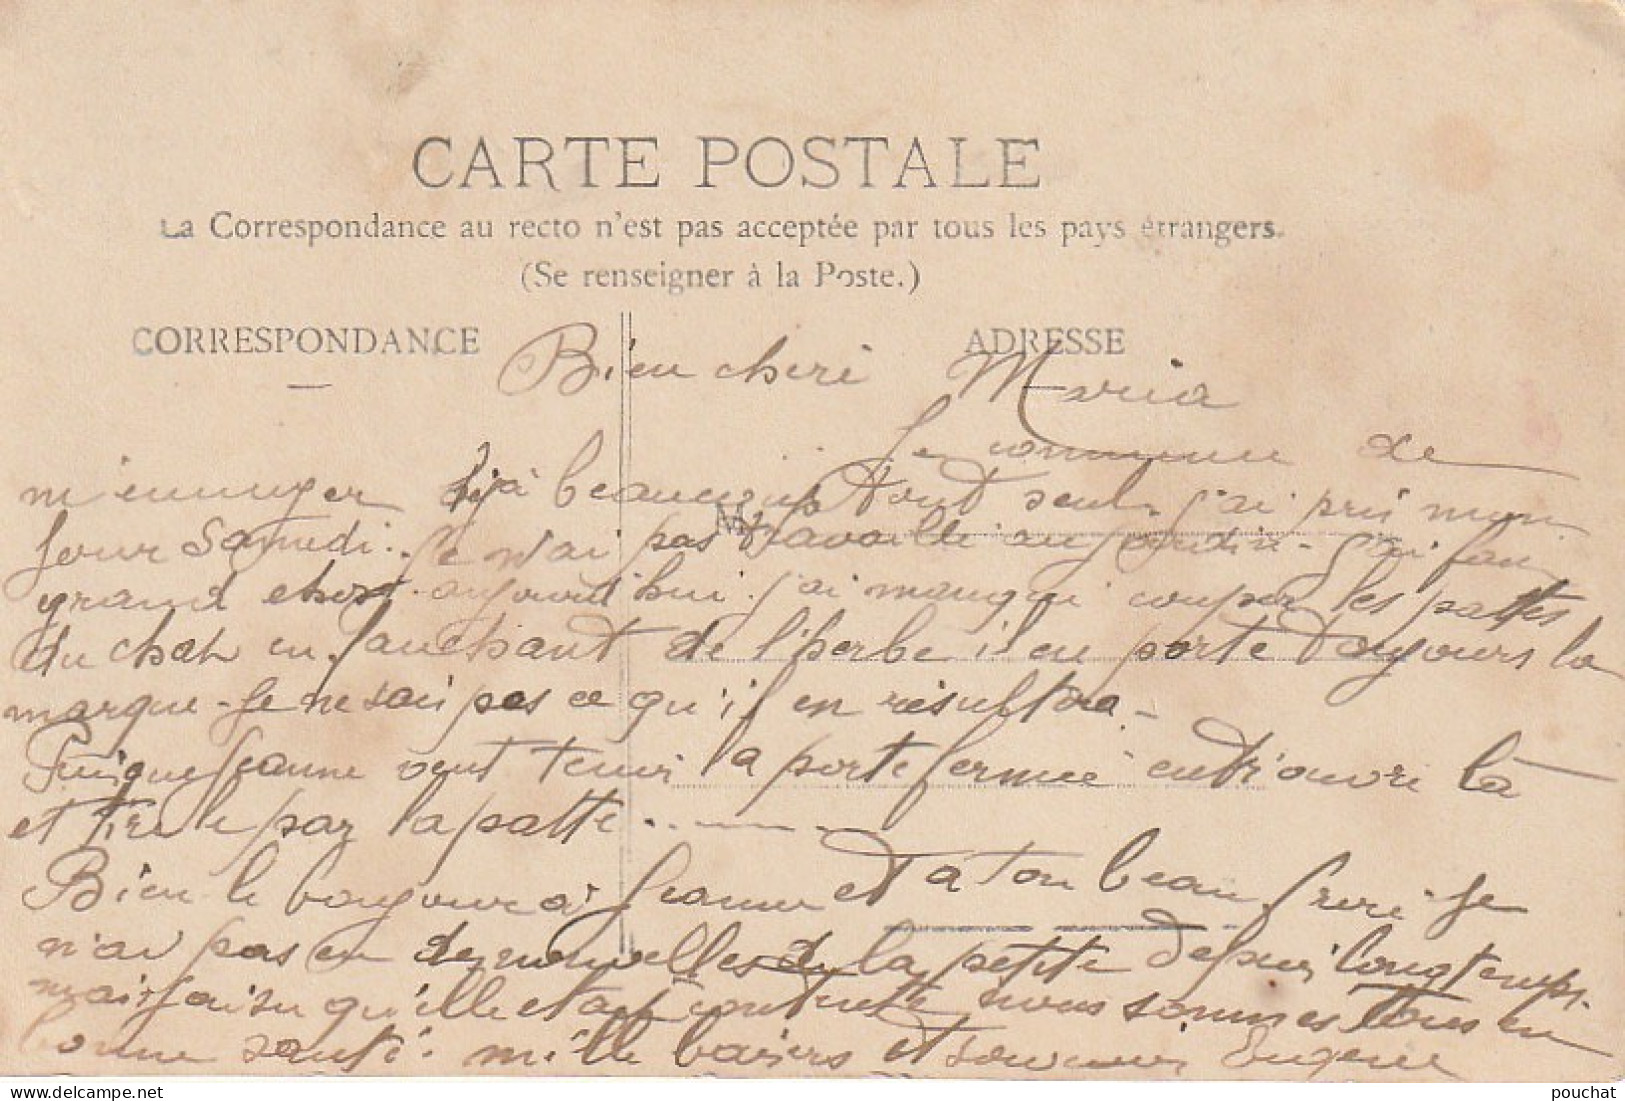 CARTE POSTALE
La Correspondance au recto n'est pas acceptée par tous les pays étrangers.
(Se renseigner à la Poste.)
CORRESPONDANCE
ADRESSE
Bien cheri Maria
Je commence de
m'ennuyer déjà beaucoup tout seul. j'ai pris mon
jour Samedi. Je n'ai pas travaille au jardin - j'ai fai
grand chose aujourd'hui. j'ai manqué couper les pattes
du chat en fauchant de l'herbe il en porte toujours la
marque - Je ne sais pas ce qu'il en résultera -
Puisque Jeanne veut tenir la porte fermée entr'ouvre là
et tire le par la patte
Bien le bonjour à Jeanne et a ton beau frere - Je
n'ai pas eu de nouvelles de la petite depuis longtemps.
mais que nous sommes tous en
bonne santé. mille baisers et Eugene
pouchat